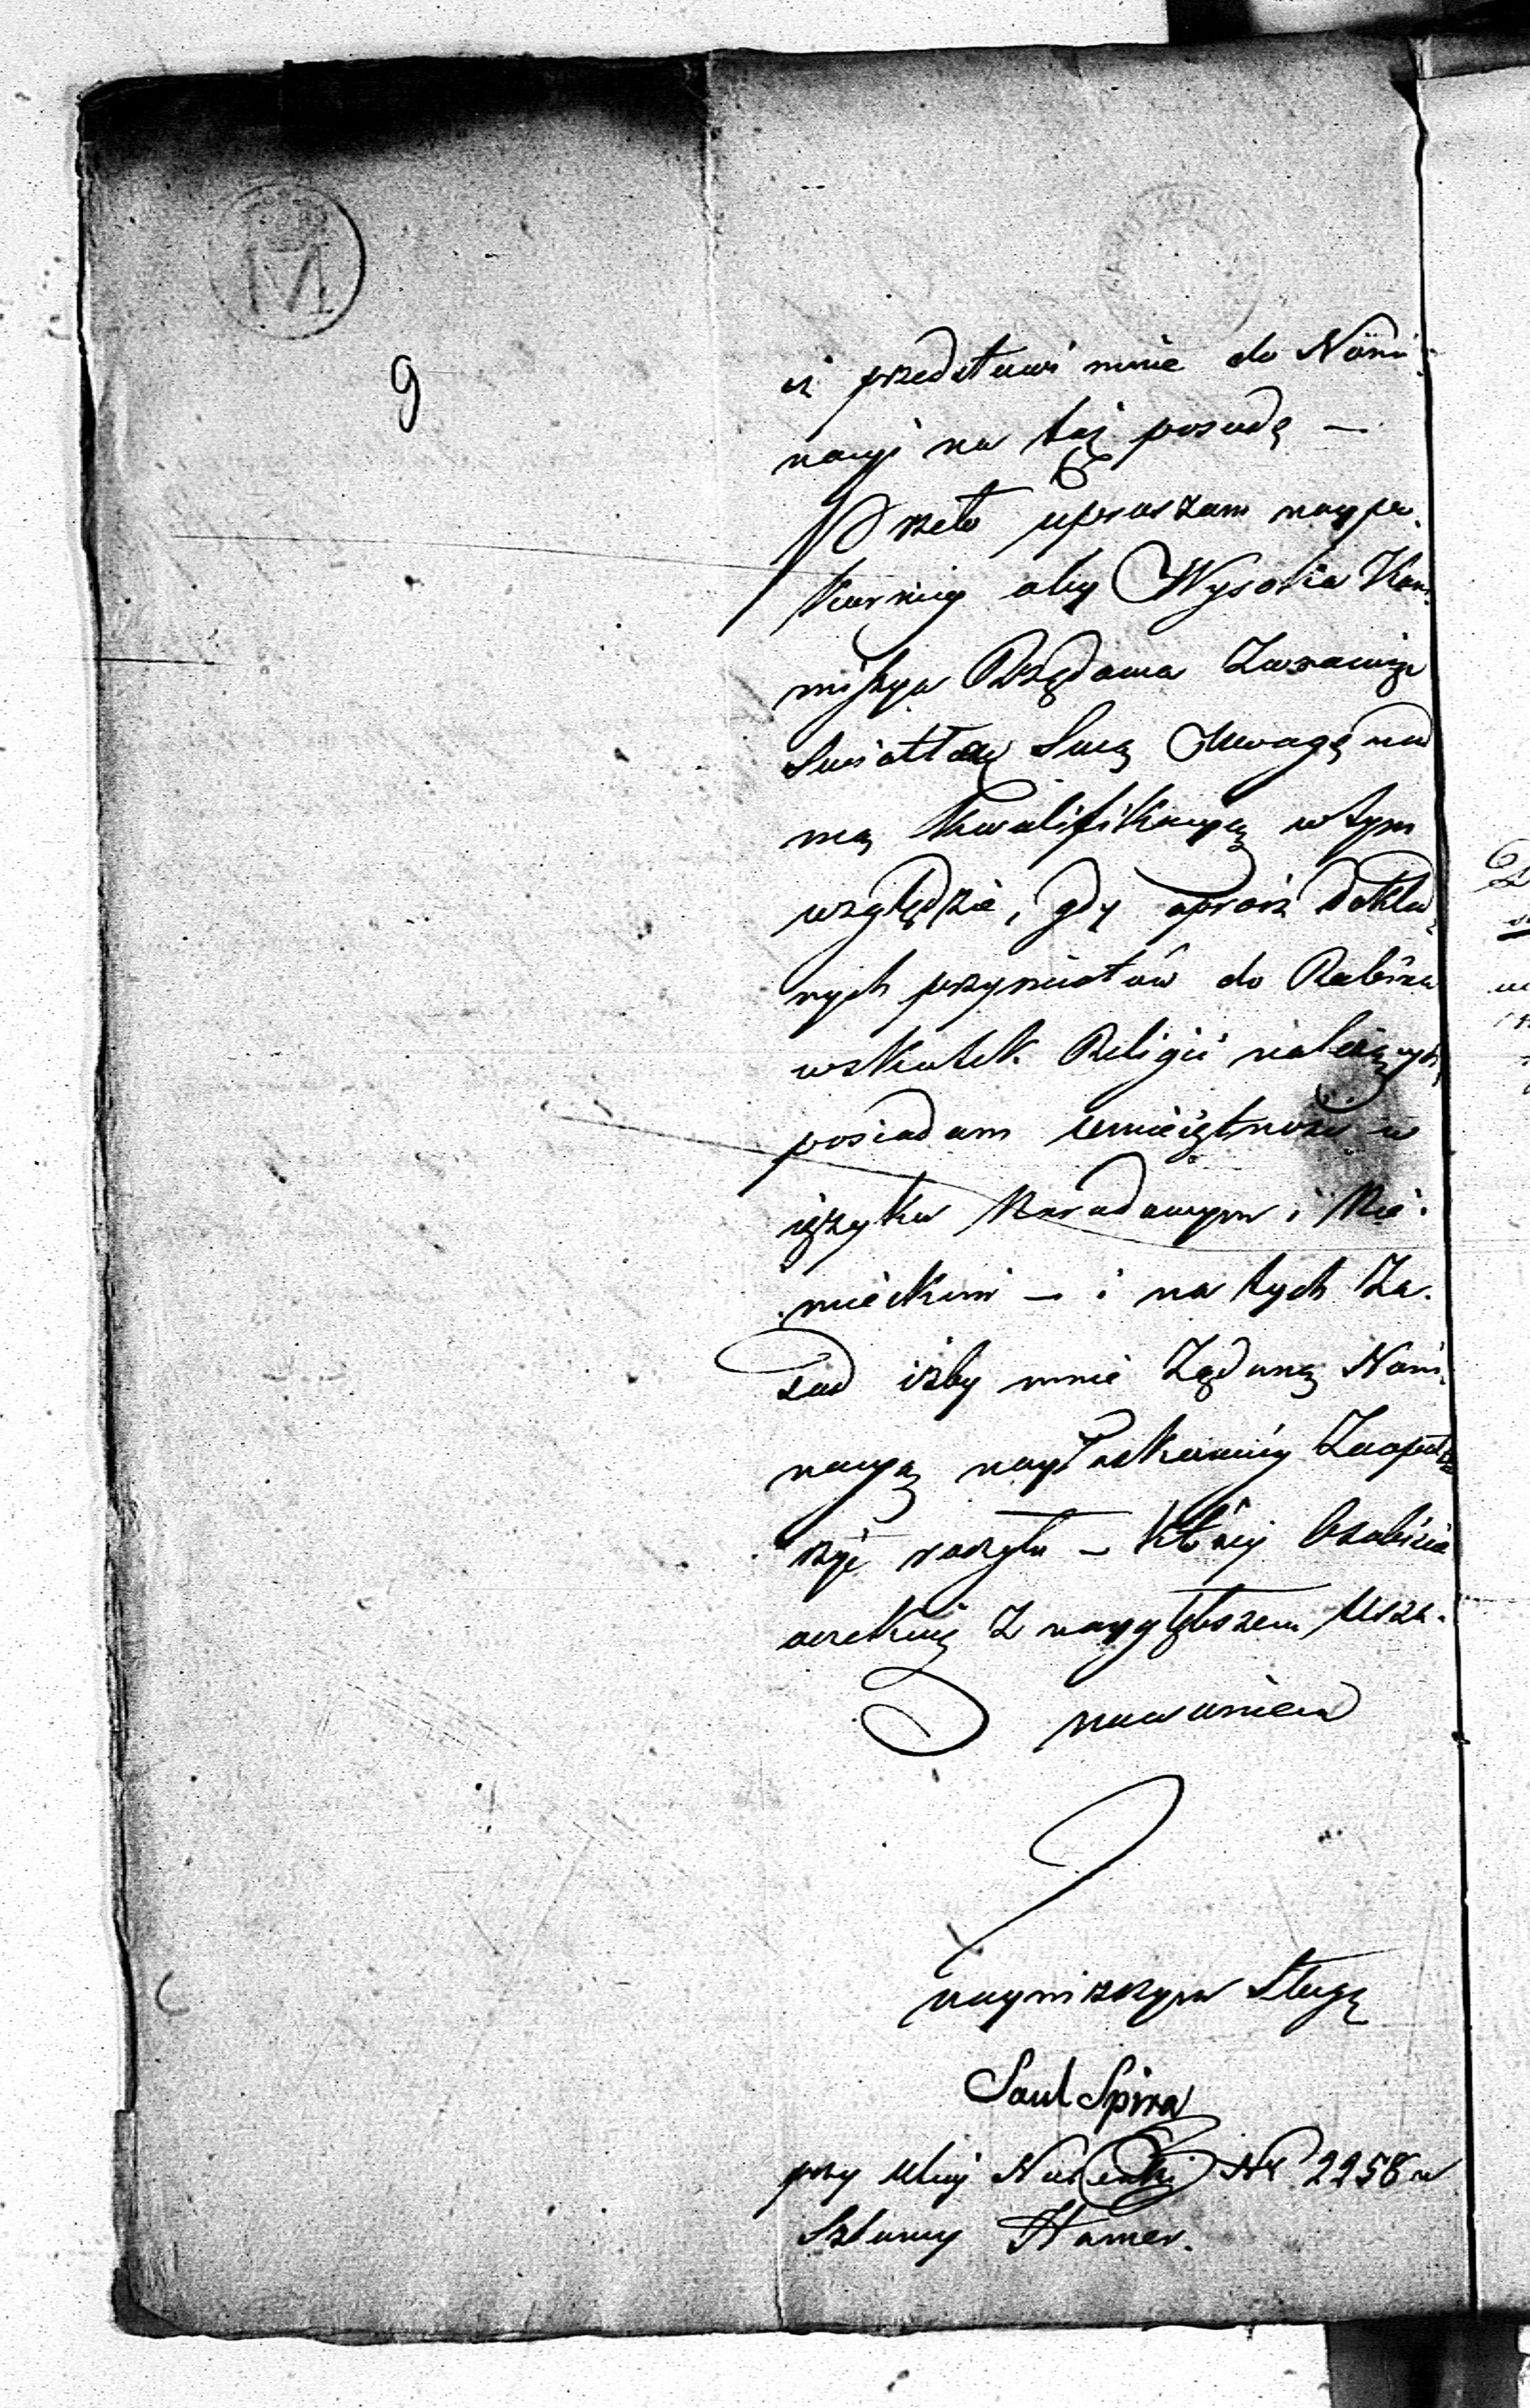 M
9
iż przedstawi mnie do Nomi-
nacyi na tąż posadę —
Przeto upraszam naypo-
korniey aby Wysoka Kom-
missya Rządowa Zwracaiąc
Swiatłą Swą Uwagę na
mą Kwalifikacyą w tym
względzie, gdy oprócz dokład-
nych przymiotów do Rabina
wskutek Religii należących,
posiadam umieiętność w
ięzyku Narodowym i Nie-
mieckim — i na tych Za-
sad iżby mnie Żądaną Nomi-
nacyą nayłaskawiey Zaopat-
rzyć raczyła — Któréy Osobiście
oczekuię Z naygłębszem Usza-
nowaniem
nayniższym Sługą
Saul Spira
przy Ulicy Nalewki Nr 2258 u
Szlamy Hamer.